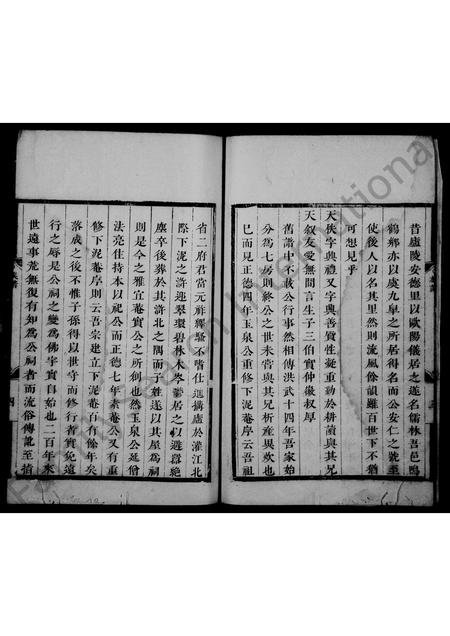 昔廬陵安德里以歐陽儀之遷名儒林吾邑鳴
鶴鄉亦以虞九臯之所居得名而公安仁之號至
使後人以名其里然則流風餘韻雖百世下不猶
可想見乎
天俠字典禮又字典善質性凝重勤於耕讀與其兄
天叙友愛無間言生子三伯實仲徽叔厚
舊譜中不載公行事然相傳洪武十四年吾家始
分為七房則終公之世未嘗與其兄析產異爨也
已而見正德四年玉泉公重修下泥菴序云吾祖
省二府君當元祥釋騷不啻仕進構廬於灌江北
際下泥之滸迎翠環碧林木岑鬱居之以避囂絕
塵卒後葬於其滸北之隅而子姓遂以其屋為祠
則是今之雅宜菴實公之所創也然玉泉公延僧
法亮住持本以祀公而正德七年素菴公又有重
修下泥菴序則云吾宗建立下泥菴百有餘年矣
落成之後不惟子孫得以世守而修行者實免遠
行之辱是公祠之變為佛宇實自始也二百年來
世遠事荒無復有知為公祠者而流俗傳訛至指